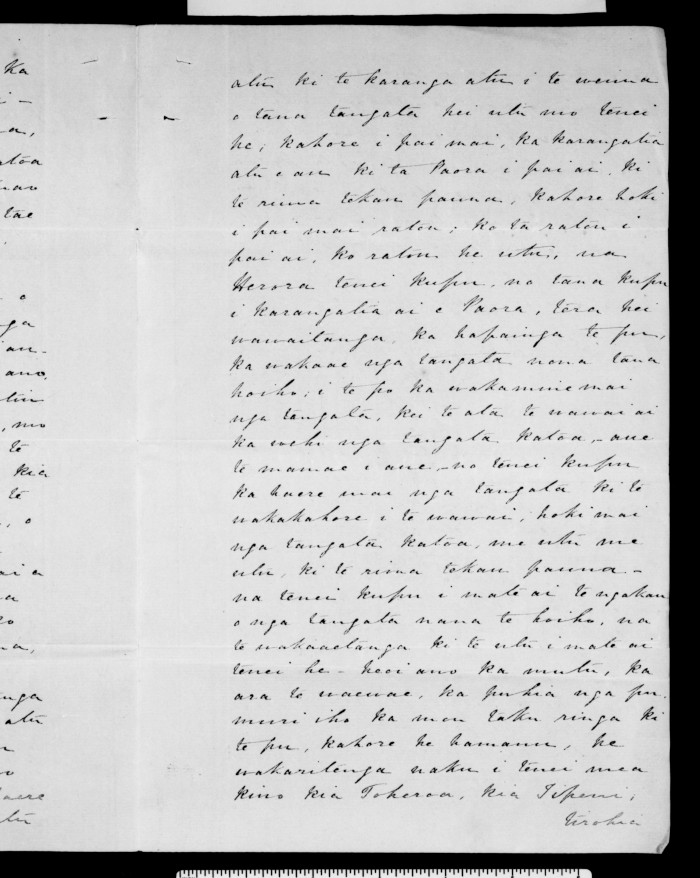 Ka
atu ki te karanga atu i te wenua
o tana tangata hei utu mo tenei
he; kahore i pai mai, ka karangatia
atu e au ki ta Paora i pai ai, ki
te rima tekau pauna, kahore hoki
i pai mai ratou; ko ta ratou i
pai ai, ko ratou he utu, na
Herora tenei kupu, na tana kupu
i karangatia ai e Paora, tera hei
wawaitanga, ka hapainga te pu,
ka wakaae nga tangata nona tana
hoiho; i te po ka wakamene mai
nga tangata, kei te ata te wawai ai
ka wehi nga tangata katoa, – aue
te mamae i aue – na tenei kupu
ka haere mai nga tangata ki te
wakakahore i te wawai, hoki mai
nga tangata katoa, me utu me
utu, ki te rima tekau pauna –
na tenei kupu i mate ai te ngakau
o nga tangata nana te hoiho, na
te wakaaetanga ki te utu i mate ai
tenei he – heoi ano ka mutu, ka
ara te waewae, ka puhia nga pu.
muri iho ka mou taku ringa ki
te pu, kahore he hamanu, he
wakaritenga naku i tenei mea
kino kia Toheroa, kia Tipene;
tirohia